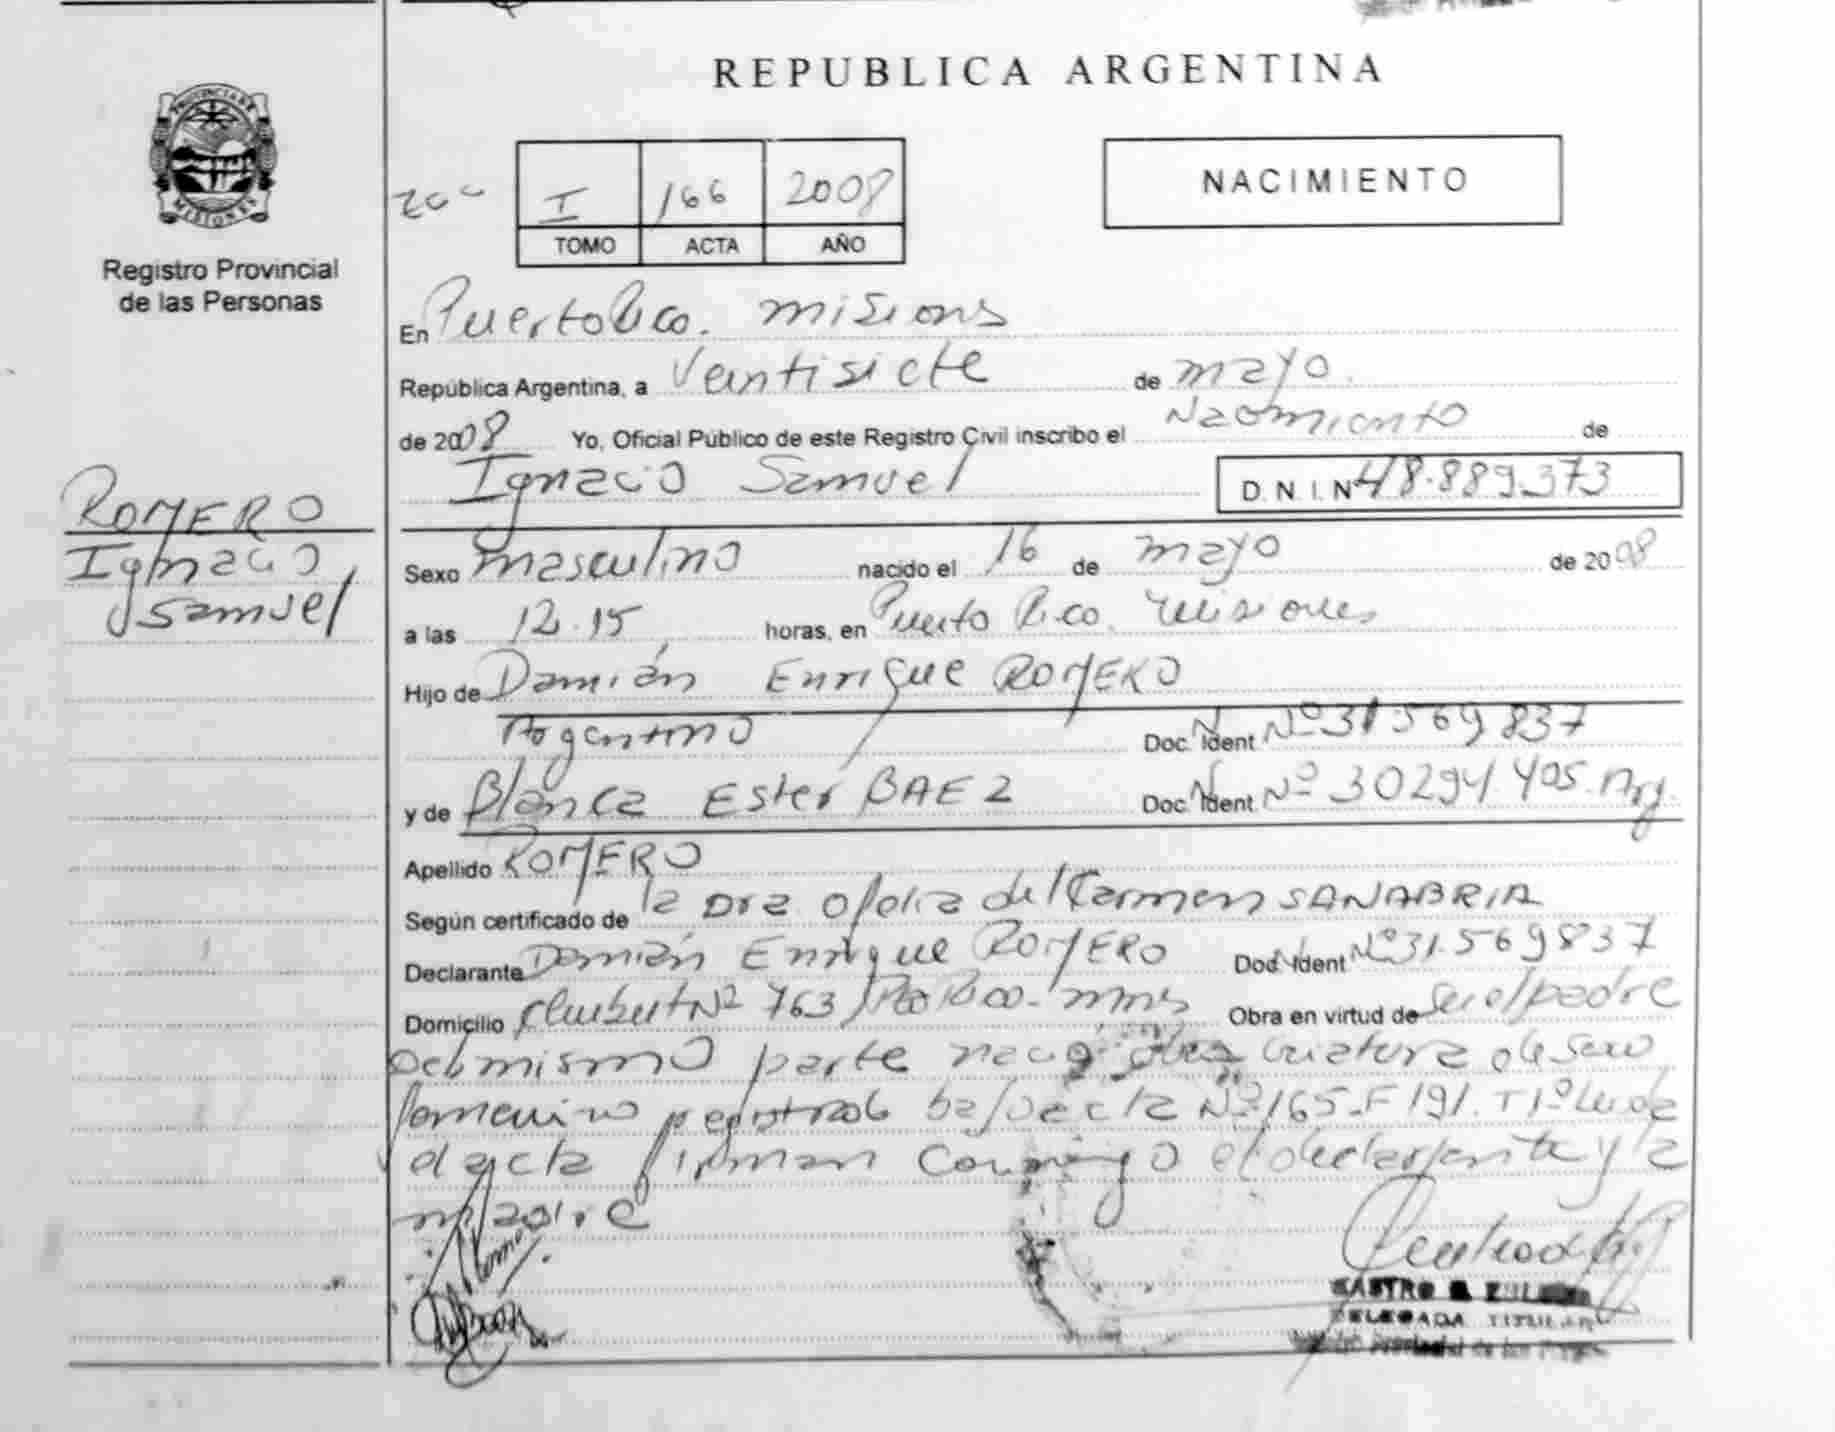 REPUBLICA ARGENTINA
PROVINCIA DE
MISIONES
Registro Provincial
de las Personas
I 166 2008
TOMO ACTA AÑO
NACIMIENTO
En Puerto Rico. Misions
República Argentina, a Veintisiete de mayo.
de 2008 Yo, Oficial Público de este Registro Civil inscribo el Nacimiento de
Ignacio Samuel D.N.I.Nº 48.889.373
ROMERO
Ignacio
Samuel
Sexo masculino nacido el 16 de mayo de 2008
a las 12.15 horas, en Puerto Rico. Misiones
Hijo de Damián Enrique ROMERO
Argentino Doc. Ident Nº 31.569.837
y de Blanca Ester BAEZ Doc. Ident Nº 30294.405. Arg.
Apellido ROMERO
Según certificado de la Dra Ofelia del Carmen SANABRIA
Declarante Damián Enrique ROMERO Doc. Ident Nº 31.569837
Domicilio Nº 763 Pto Rico. mnes Obra en virtud de ser el padre
Del mismo parto nació otra criatura de sexo
femenino registrado bajo acta Nº 165.F 191.T 1º Leida
el acta firman conmigo el declarante y la
madre
CASTRO
DELEGADA TITULAR
Provincial de las